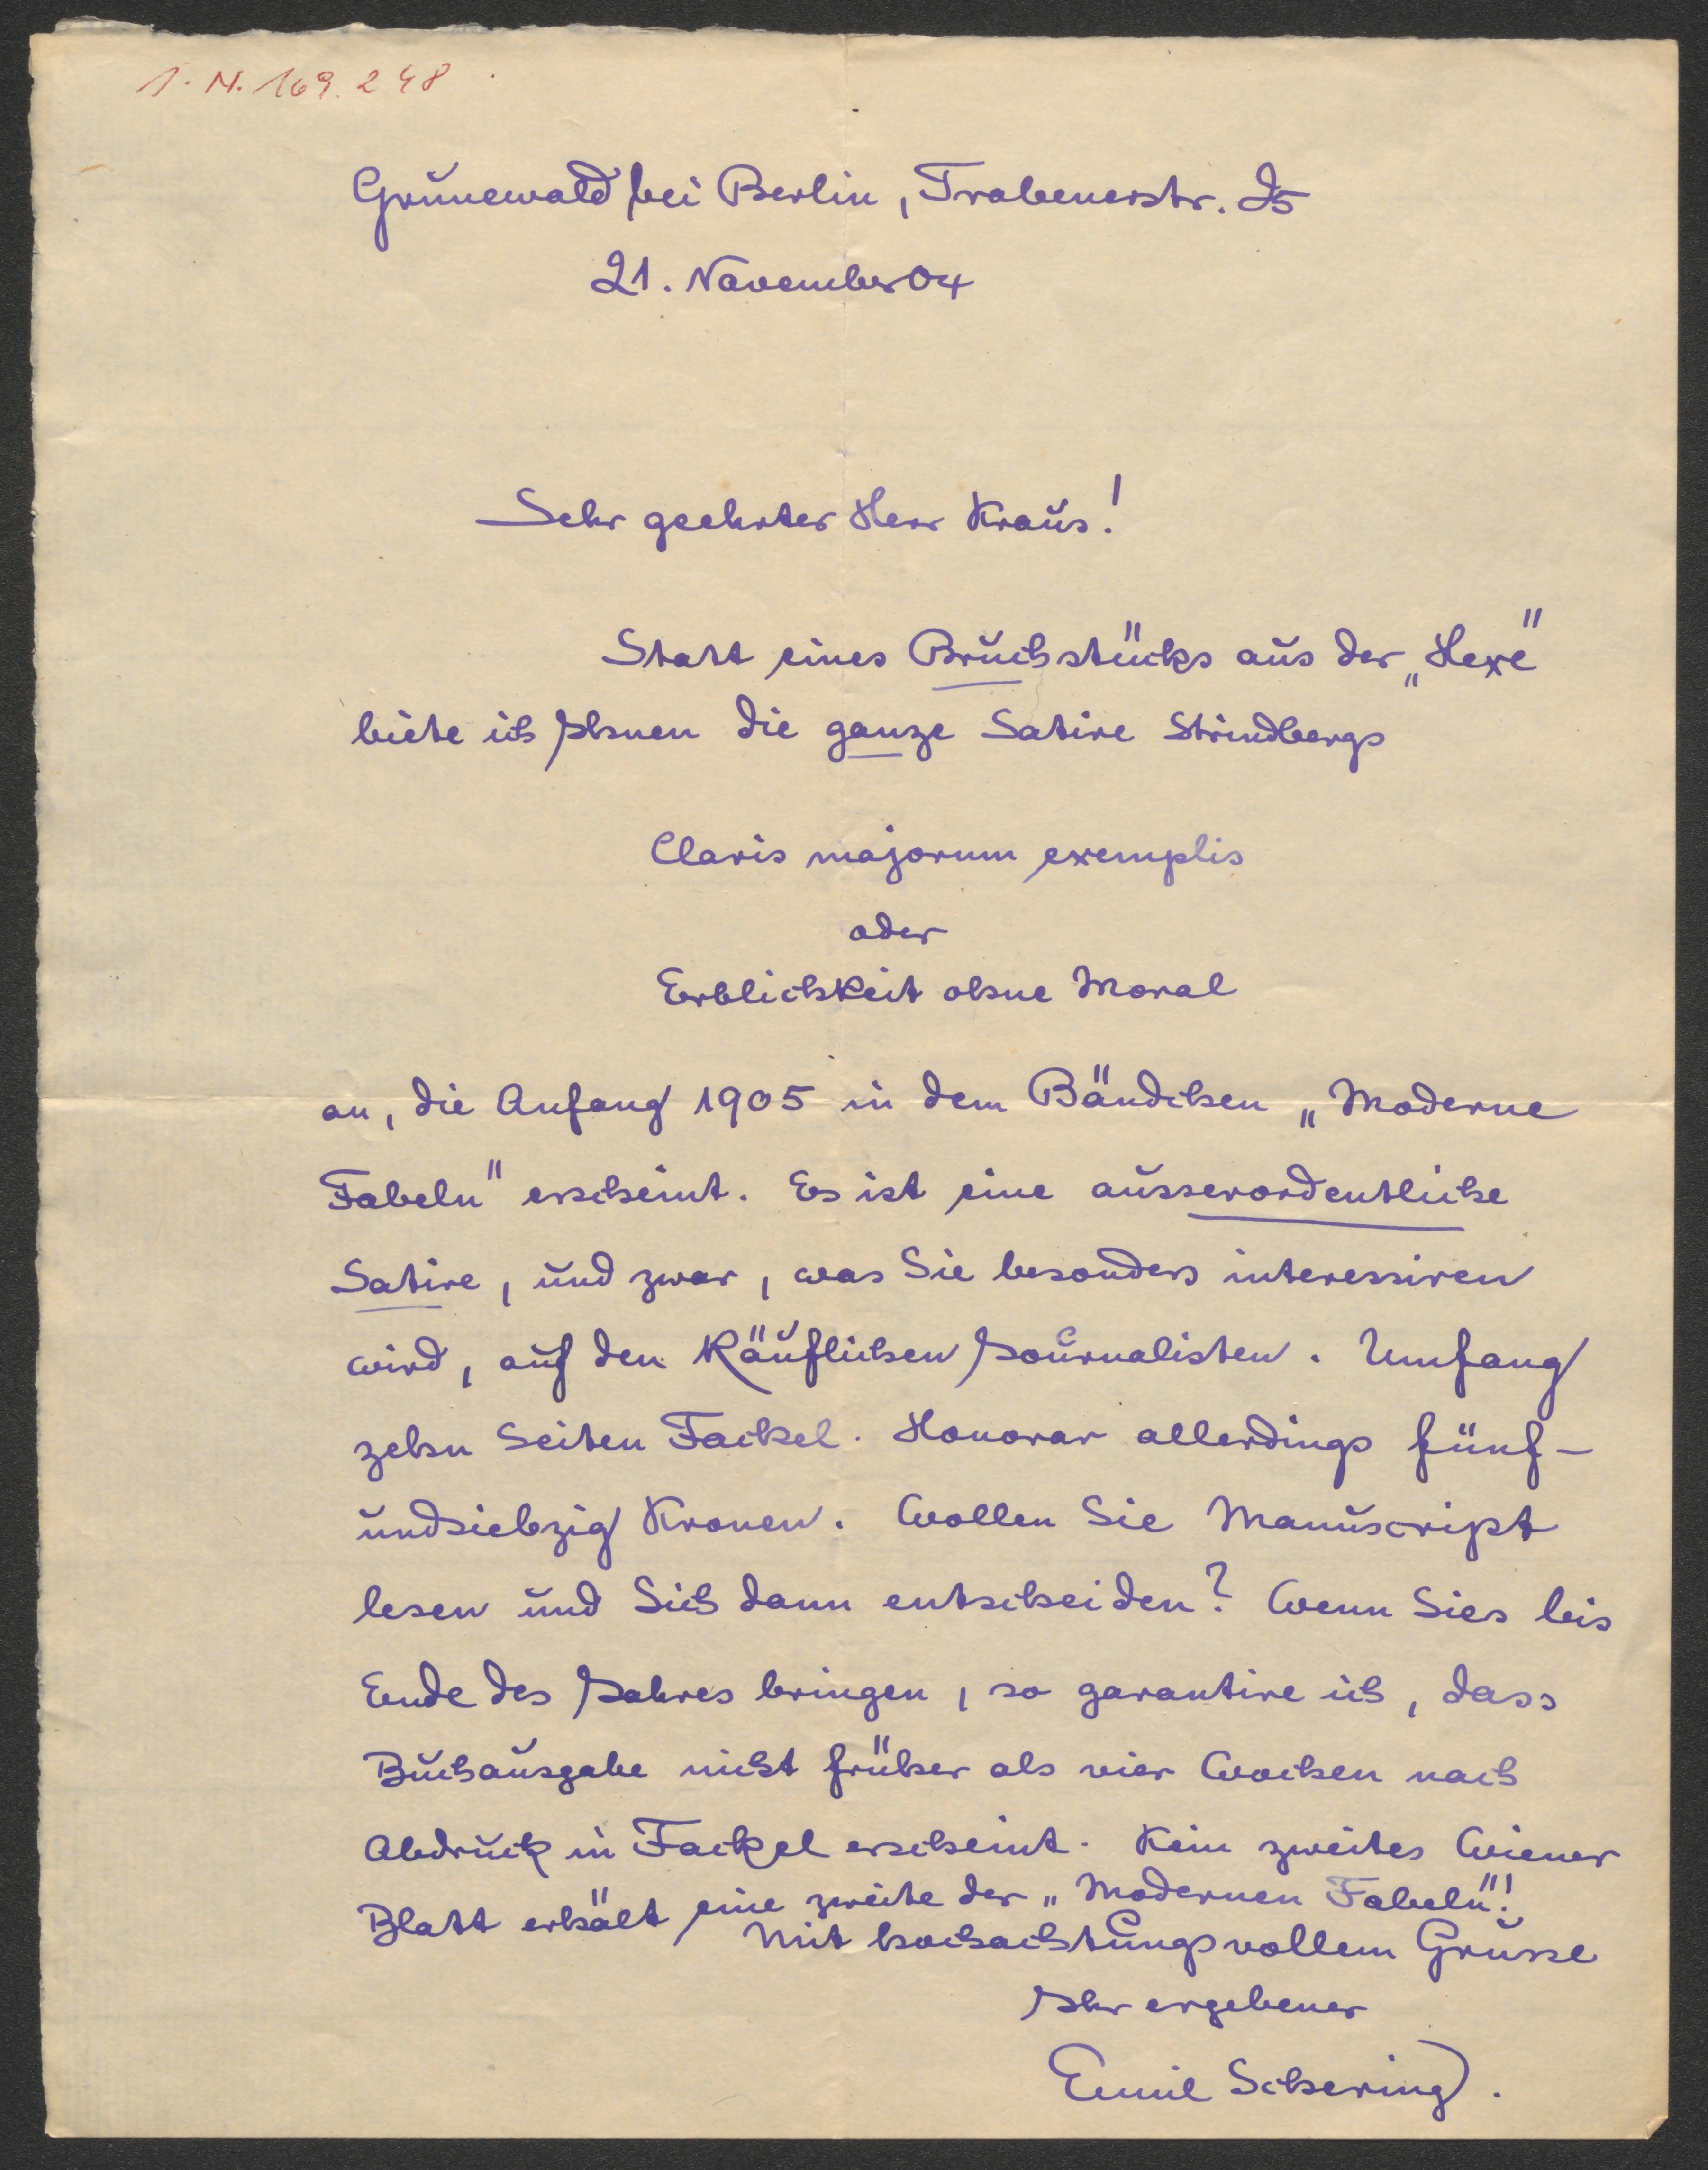 I. N. 169.248
Grunewald bei Berlin, Trabenerstr. 25
21. November 04
Sehr geehrter Herr Kraus!
Statt eines Bruchstücks aus der „Hexe"
biete ich Ihnen die ganze Satire Strindbergs
Claris majorum exemplis
oder
Erblichkeit ohne Moral
an, die Anfang 1905 in dem Bändchen „Moderne
Fabeln" erscheint. Es ist eine ausserordentliche
Satire, und zwar, was Sie besonders interessiren
wird, auf den Käuflichen Journalisten. Umfang
zehn Seiten Fackel. Honorar allerdings fünf-
undsiebzig Kronen. Wollen Sie Manuscript
lesen und Sich dann entscheiden? Wenn Sies bis
Ende des Jahres bringen, so garantire ich, dass
Buchausgabe nicht früher als vier Wochen nach
Abdruck in Fackel erscheint. Kein zweites Wiener
Blatt erhält eine zweite der „Modernen Fabeln"!
Mit hochachtungsvollem Grusse
Ihr ergebener
Emil Schering.